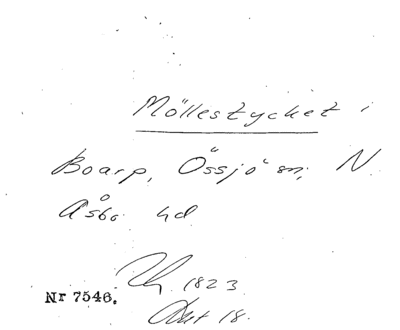 Möllestycket i
Boarp, Össjö sn, N
Åsbo hd
1823
Nr 7546.
Akt 18.